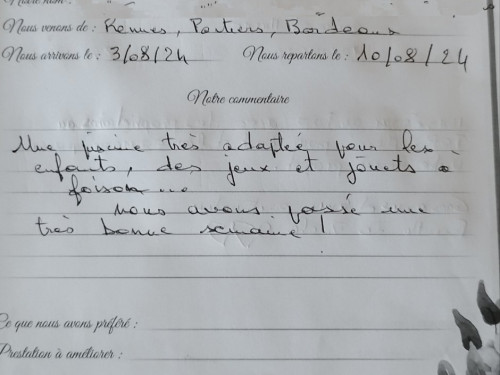 Nous venons de : Rennes, Poitiers, Bordeaux
Nous arrivons le : 3/08/24 Nous repartons le : 10/08/24
Notre commentaire
Une piscine très adaptée pour les
enfants, des jeux et jouets à
foison...
nous avons passé une
très bonne semaine !
Ce que nous avons préféré :
Prestation à améliorer :